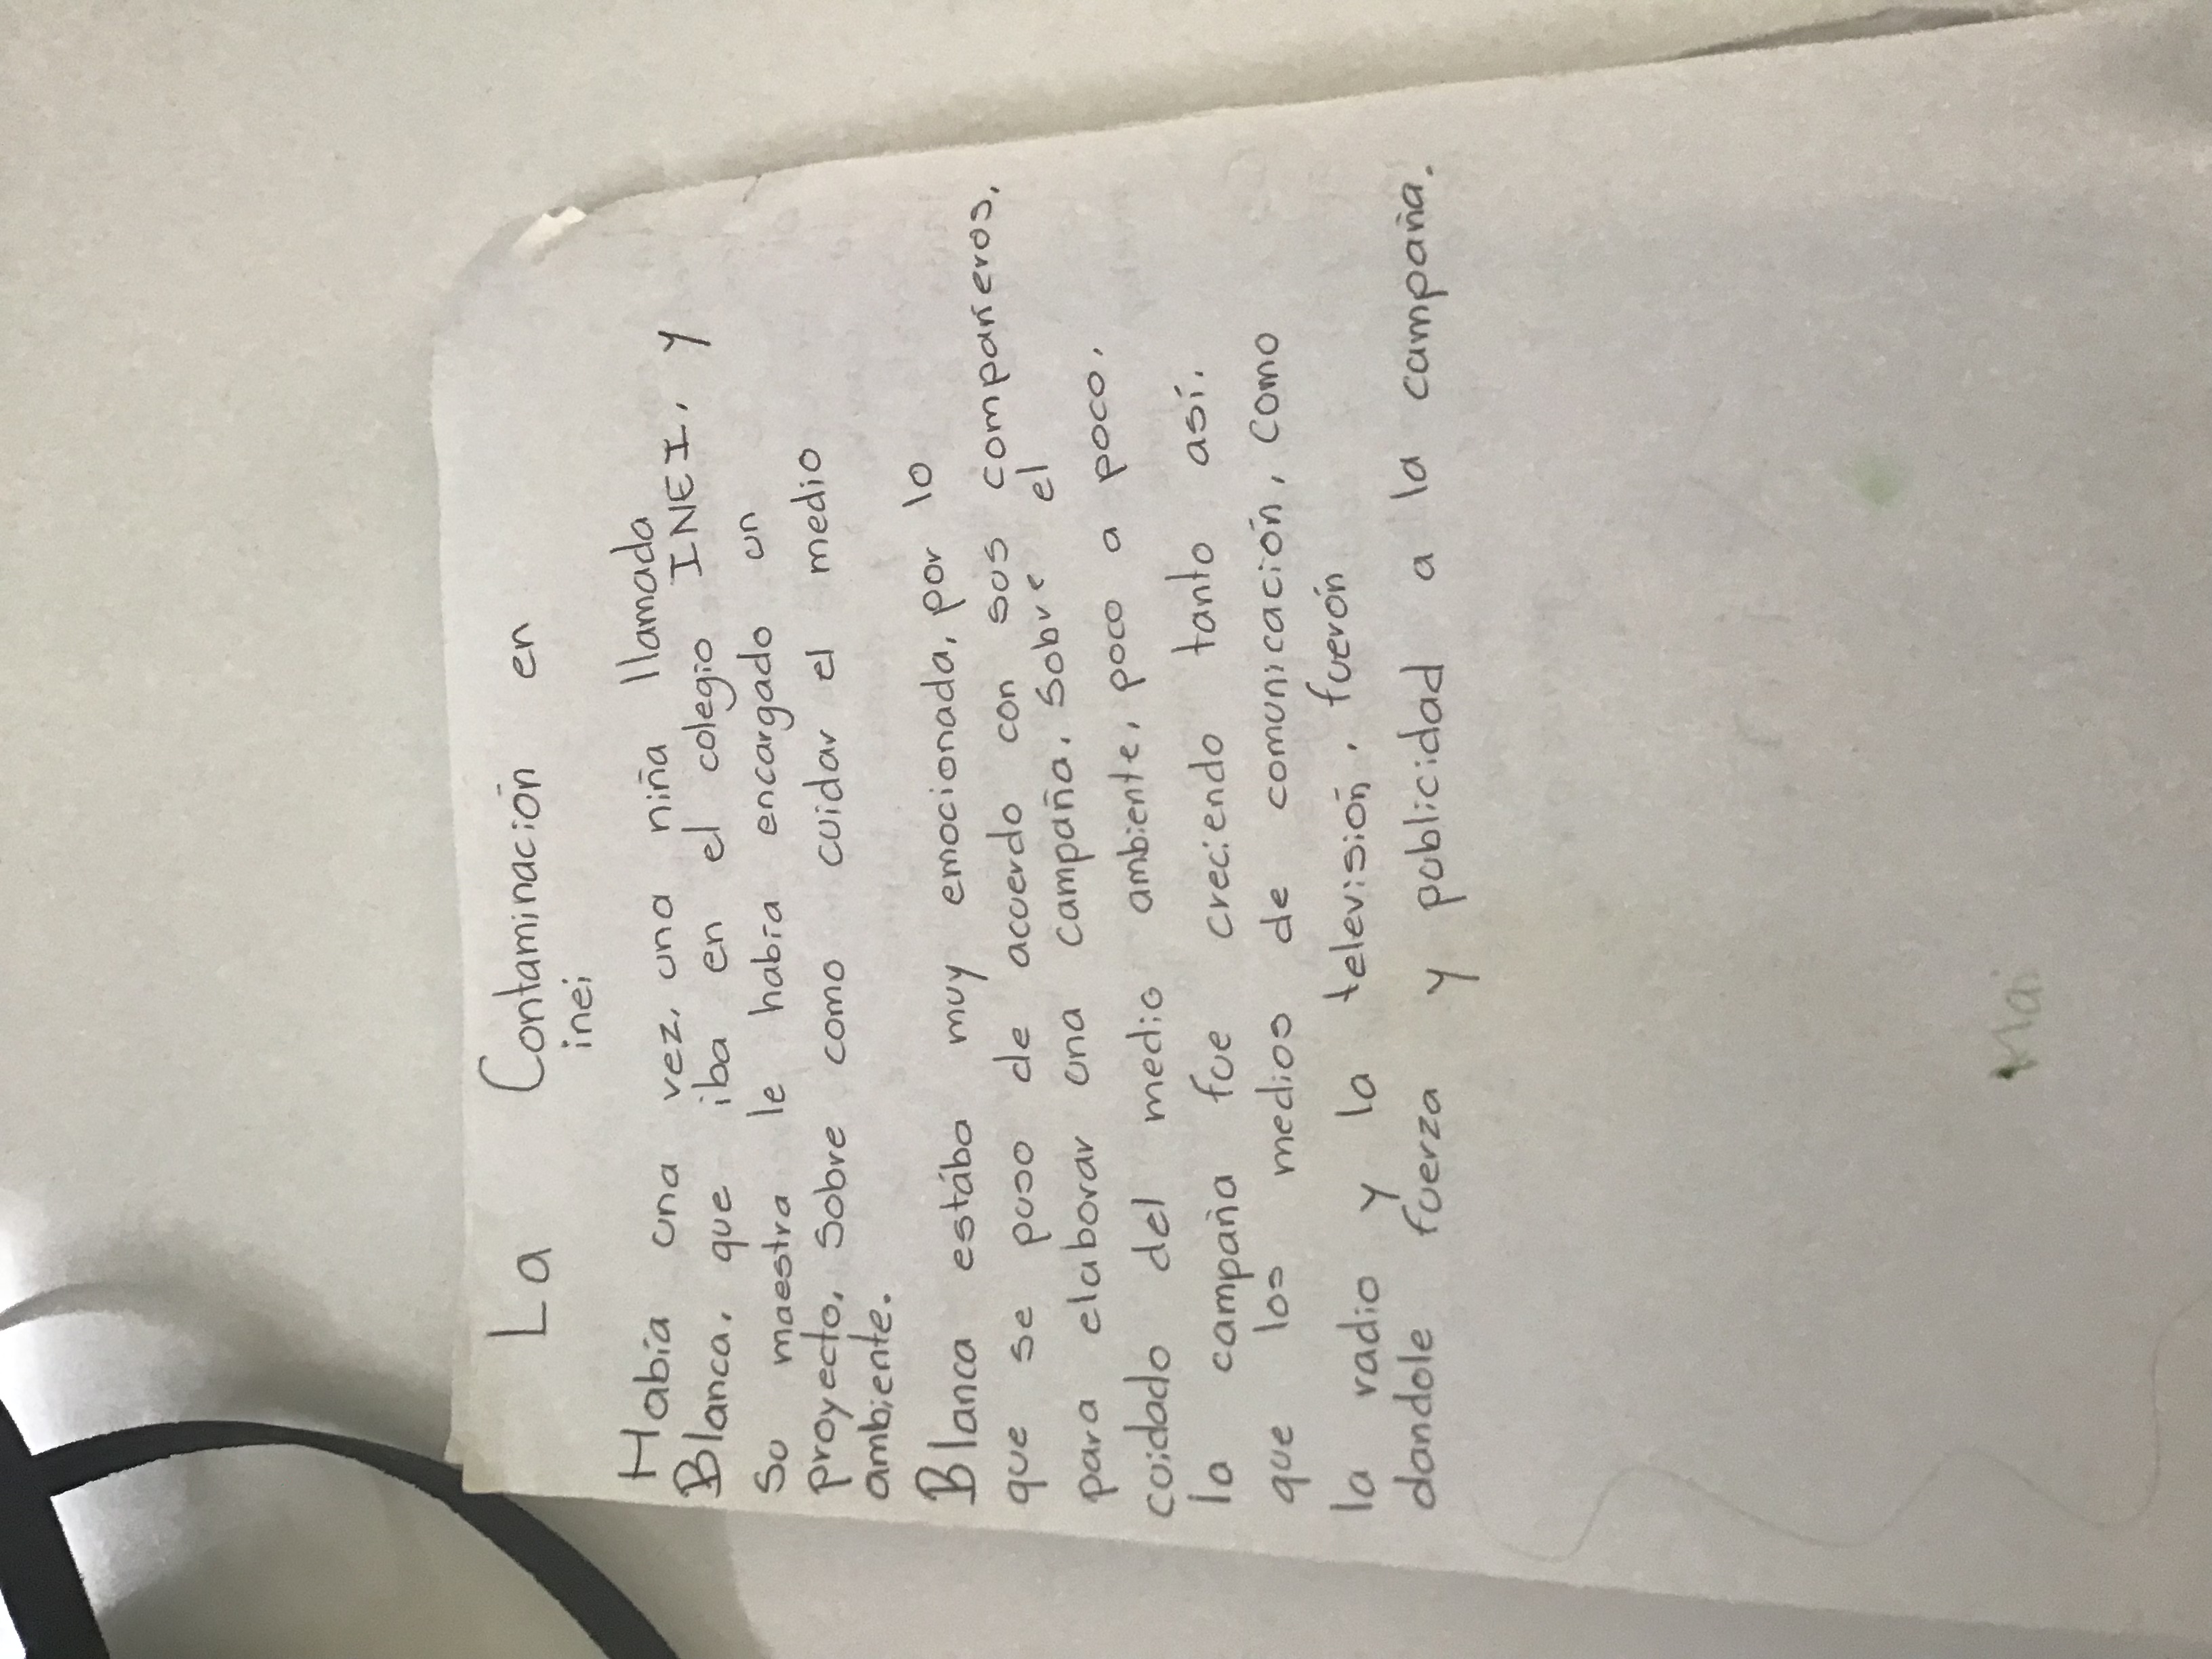 La Contaminación en
inei
Había una vez, una niña llamada
Blanca, que iba en el colegio INEI, y
su maestra le había encargado un
proyecto, sobre como cuidar el medio
ambiente.
Blanca estába muy emocionada, por lo
que se puso de acuerdo con sus compañeros,
para elaborar una campaña, sobre el
cuidado del medio ambiente, poco a poco,
la campaña fue creciendo tanto así,
que los medios de comunicación, como
la radio y la televisión, fuerón
dandole fuerza y publicidad a la campaña.